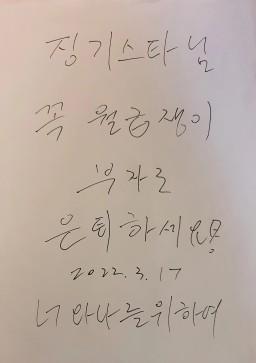 징기스타님
꼭 월급쟁이
부자로
은퇴하세요
2022.3.17
너와나를위하여